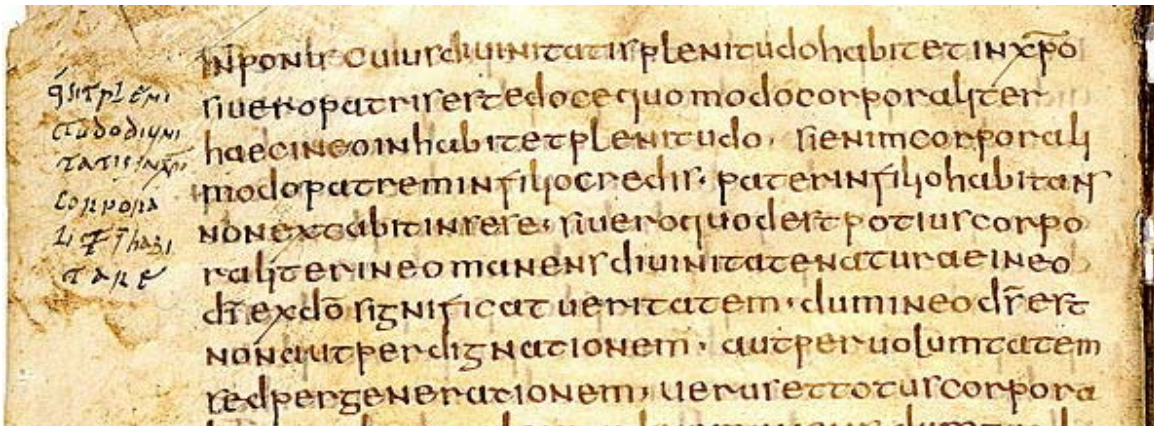 q̄ sit pleni
tudo diuini
tatis in x̄p̄o
corpora
lit̄ habi
tare
inponis cuius diuinitatis plenitudo habitet in x̄p̄o
si uero patris est edoce quomodo corporaliter
haec in eo inhabitet plenitudo · si enim corporali
modo patrem in filio credis · pater in filio habitans
non extabit in sese · si uero quod est potius corpo
raliter in eo manens diuinitate naturae in eo
d̄s̄ ex d̄ō significat ueritatem · dum in eo d̄s̄ est
non aut per dignationem · aut per uolumtatem
sed per generationem · uerus et totus corpora